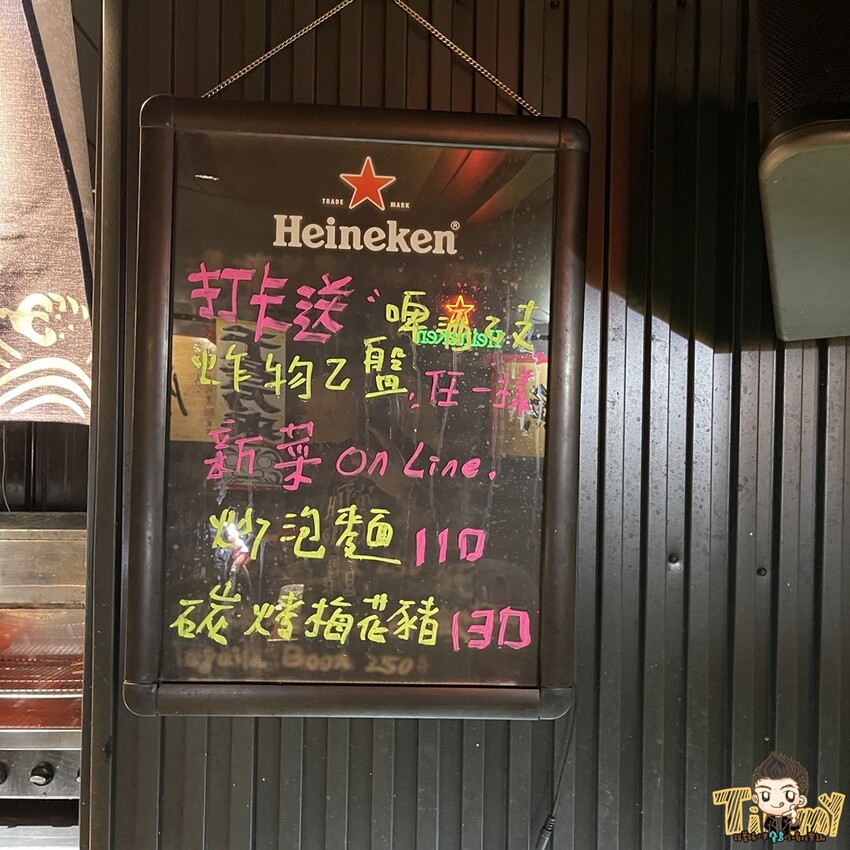 TRADE MARK
Heineken®
打卡送：啤酒乙支
炸物乙盤：任一樣
新菜 On Line.
炒泡麵 110
碳烤梅花豬 130
Boom 250
Heineken
Timmy